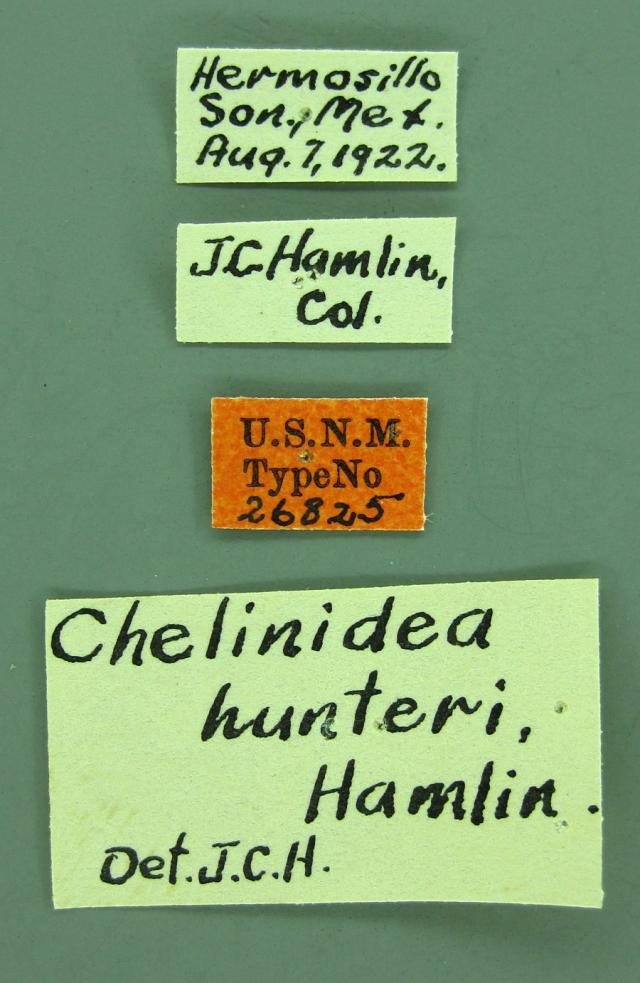 Hermosillo
Son., Mex.
Aug. 7, 1922.
J.C. Hamlin,
Col.
U.S.N.M.
Type No
26825
Chelinidea
hunteri,
Hamlin.
Det. J.C.H.